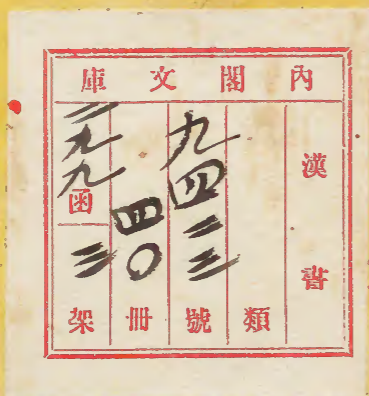 內閣文庫
漢書
類
九四二三號
四〇冊
二九九函
三架